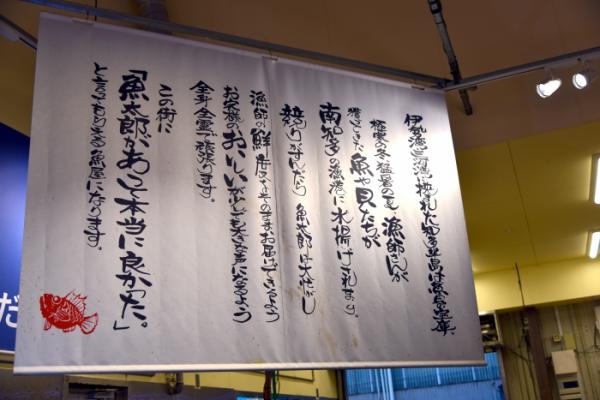 伊勢湾三河湾に挟まれた知多半島は魚の宝庫、
極寒の冬・猛暑の夏、漁師さんが
獲ってきた魚や貝たちが
南知多の漁港に水揚げされます。
競りがすんだら魚太郎は大忙し
漁師の鮮度をそのままお届けできるよう
お客様のおいしいがもっと大きな声になるよう
全身全霊で頑張ります。
この街に
「魚太郎があって本当に良かった。」
と言ってもらえる魚屋になります。
だ